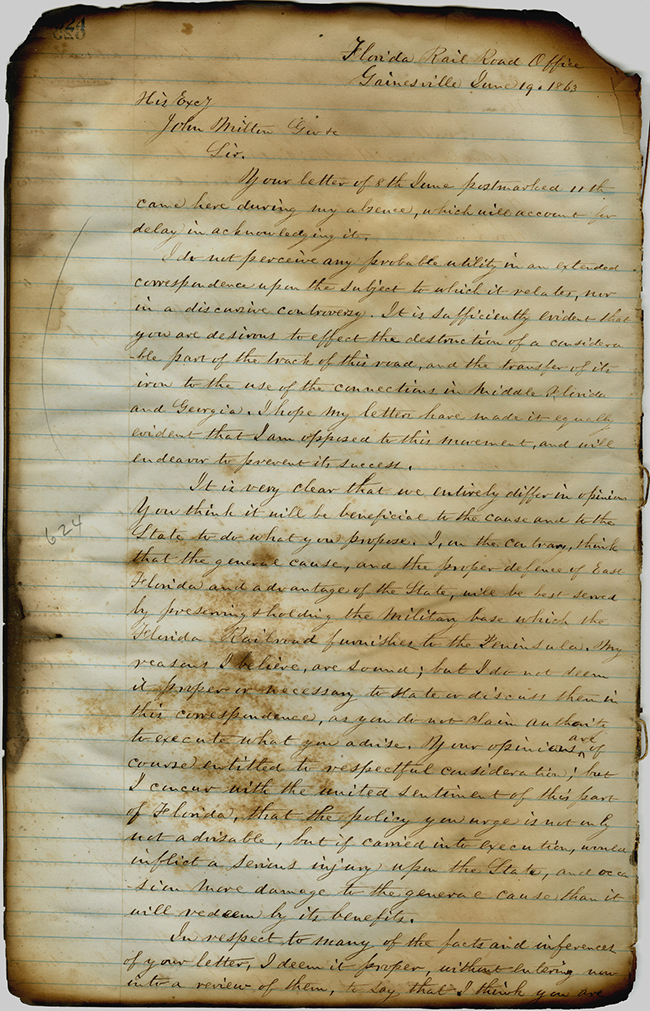 624
Florida Rail Road Office
Gainesville June 19. 1863
His Excy
John Milton Gov &c
Sir.
Your letter of 8th June postmarked 11th
came here during my absence, which will account for
delay in acknowledging it.
I do not perceive any probable utility in an extended
correspondence upon the subject to which it relates, nor
in a discursive controversy. It is sufficiently evident that
you are desirous to effect the destruction of a considera
-ble part of the track of this road, and the transfer of its
iron to the use of the connections in Middle Florida
and Georgia. I hope my letters have made it equally
evident that I am opposed to this movement, and will
endeavor to prevent its success.
It is very clear that we entirely differ in opinion
You think it will be beneficial to the cause and to the
State to do what you propose. I, on the contrary, think
that the general cause, and the proper defence of East
Florida and advantage of the State, will be best served
by preserving & holding the military base which the
Florida Railroad furnishes to the Peninsula. My
reasons I believe, are sound; but I do not seem
it proper or necessary to state or discuss them in
this correspondence, as you do not claim authority
to execute what you advise. Your opinions are of
course entitled to respectful consideration; but
I concur with the united sentiment of this part
of Florida, that the policy you urge is not only
not advisable, but if carried into execution, would
inflict a serious injury upon the State, and occa
-sion more damage to the general cause than it
will redeem by its benefits.
In respect to many of the facts and inferences
of your letter, I deem it proper, without entering now
into a review of them, to say that I think you are
624